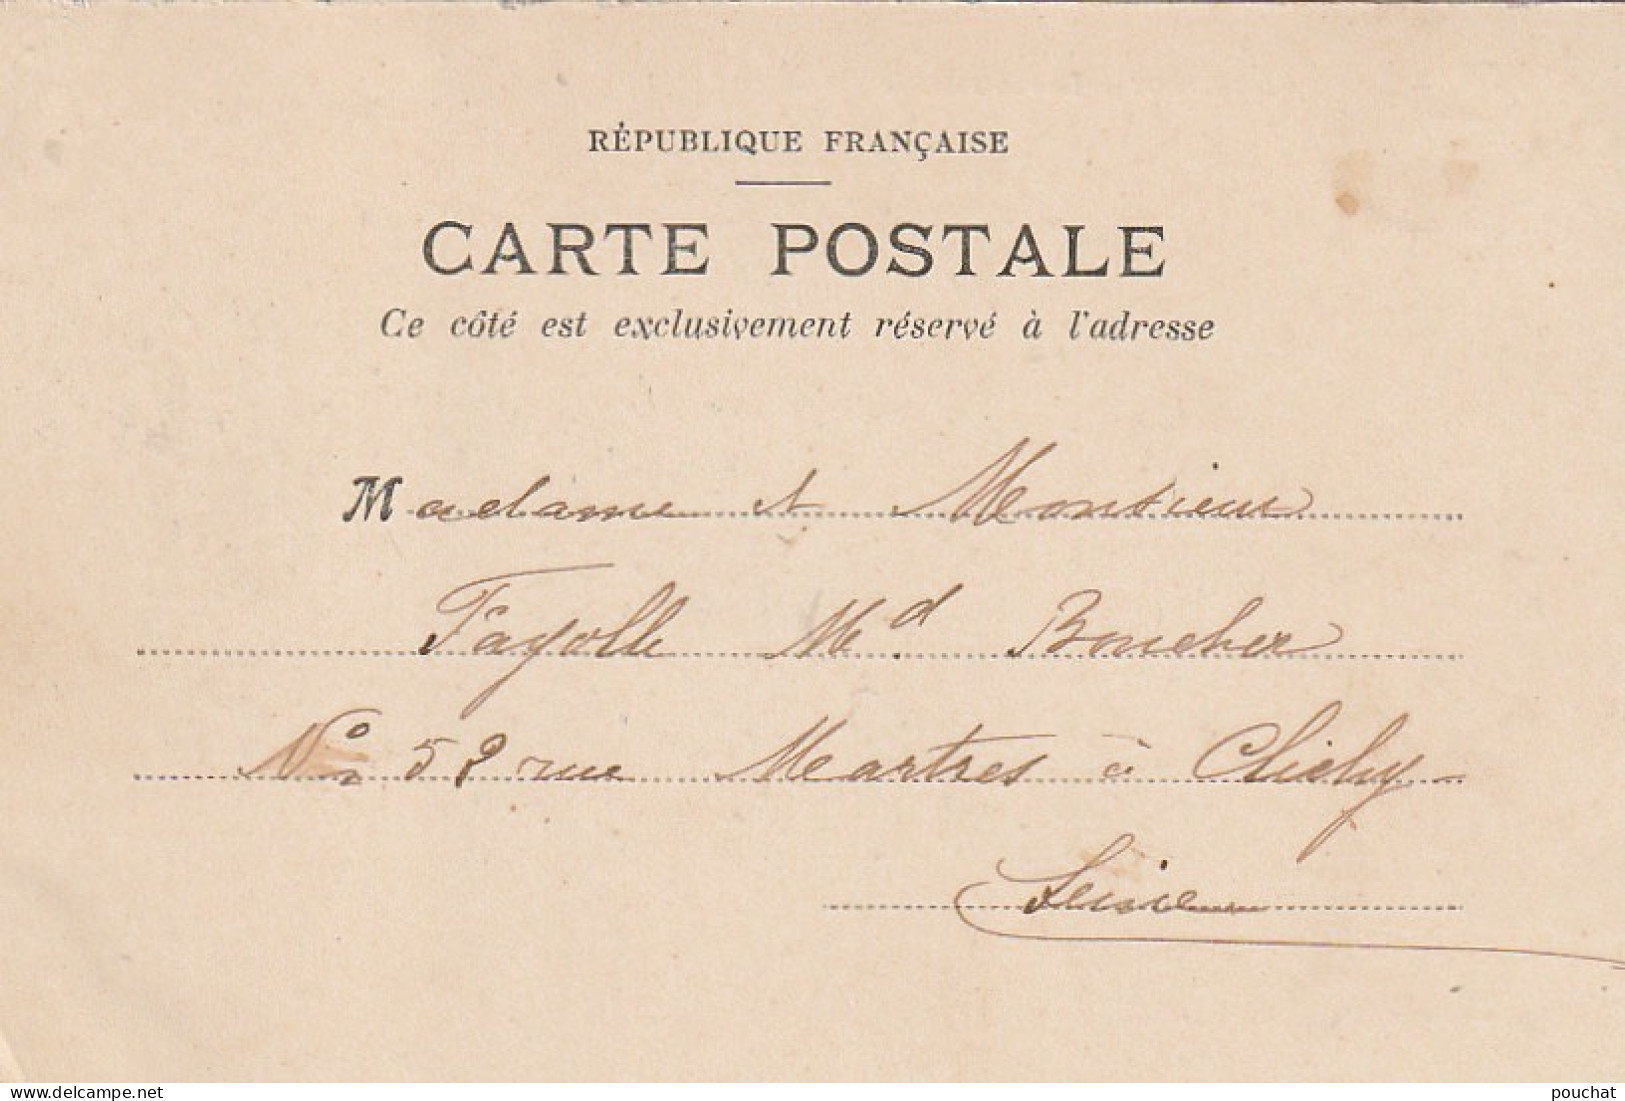 RÉPUBLIQUE FRANÇAISE
CARTE POSTALE
Ce côté est exclusivement réservé à l'adresse
Madame et Monsieur
Fayolle Md Boucher
No rue Martres à Clichy
Seine
pouchat